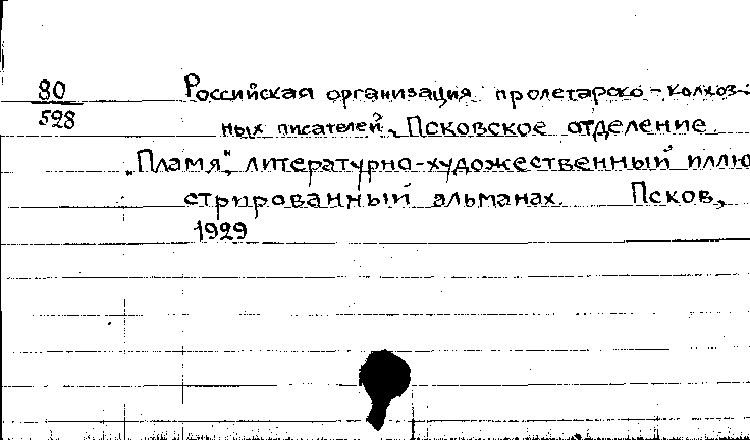 80
598
Российская организация пролетарско-колхоз-
ных писателей, Псковское отделение
„Пламя“, литературно-художественный иллю
стрированный альманах. Псков,
1929